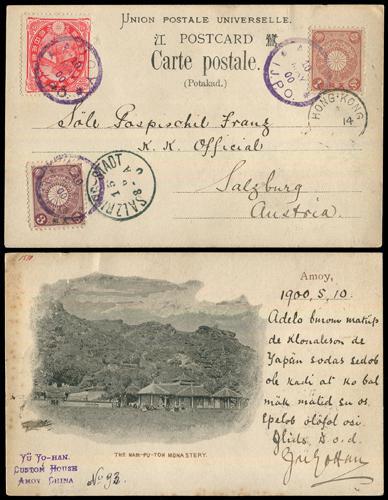 UNION POSTALE UNIVERSELLE.
POSTCARD
Carte postale.
(Potakad.)
I.J.P.O.
HONG-KONG
14
Söle Pospischil Franz
K. K. Official
Salzburg
Austria.
SALZBURG STADT
Amoy,
1900, 5, 10.
Adelo
de Klonaleson de
Yapän sodas sedob
ole kadi at ko bal
mäk mätid su os
epelob olöfol osi.
THE NAN-PU-TOH MONASTERY.
YÜ YO-HAN.
CUSTOM HOUSE
AMOY CHINA
No 93.